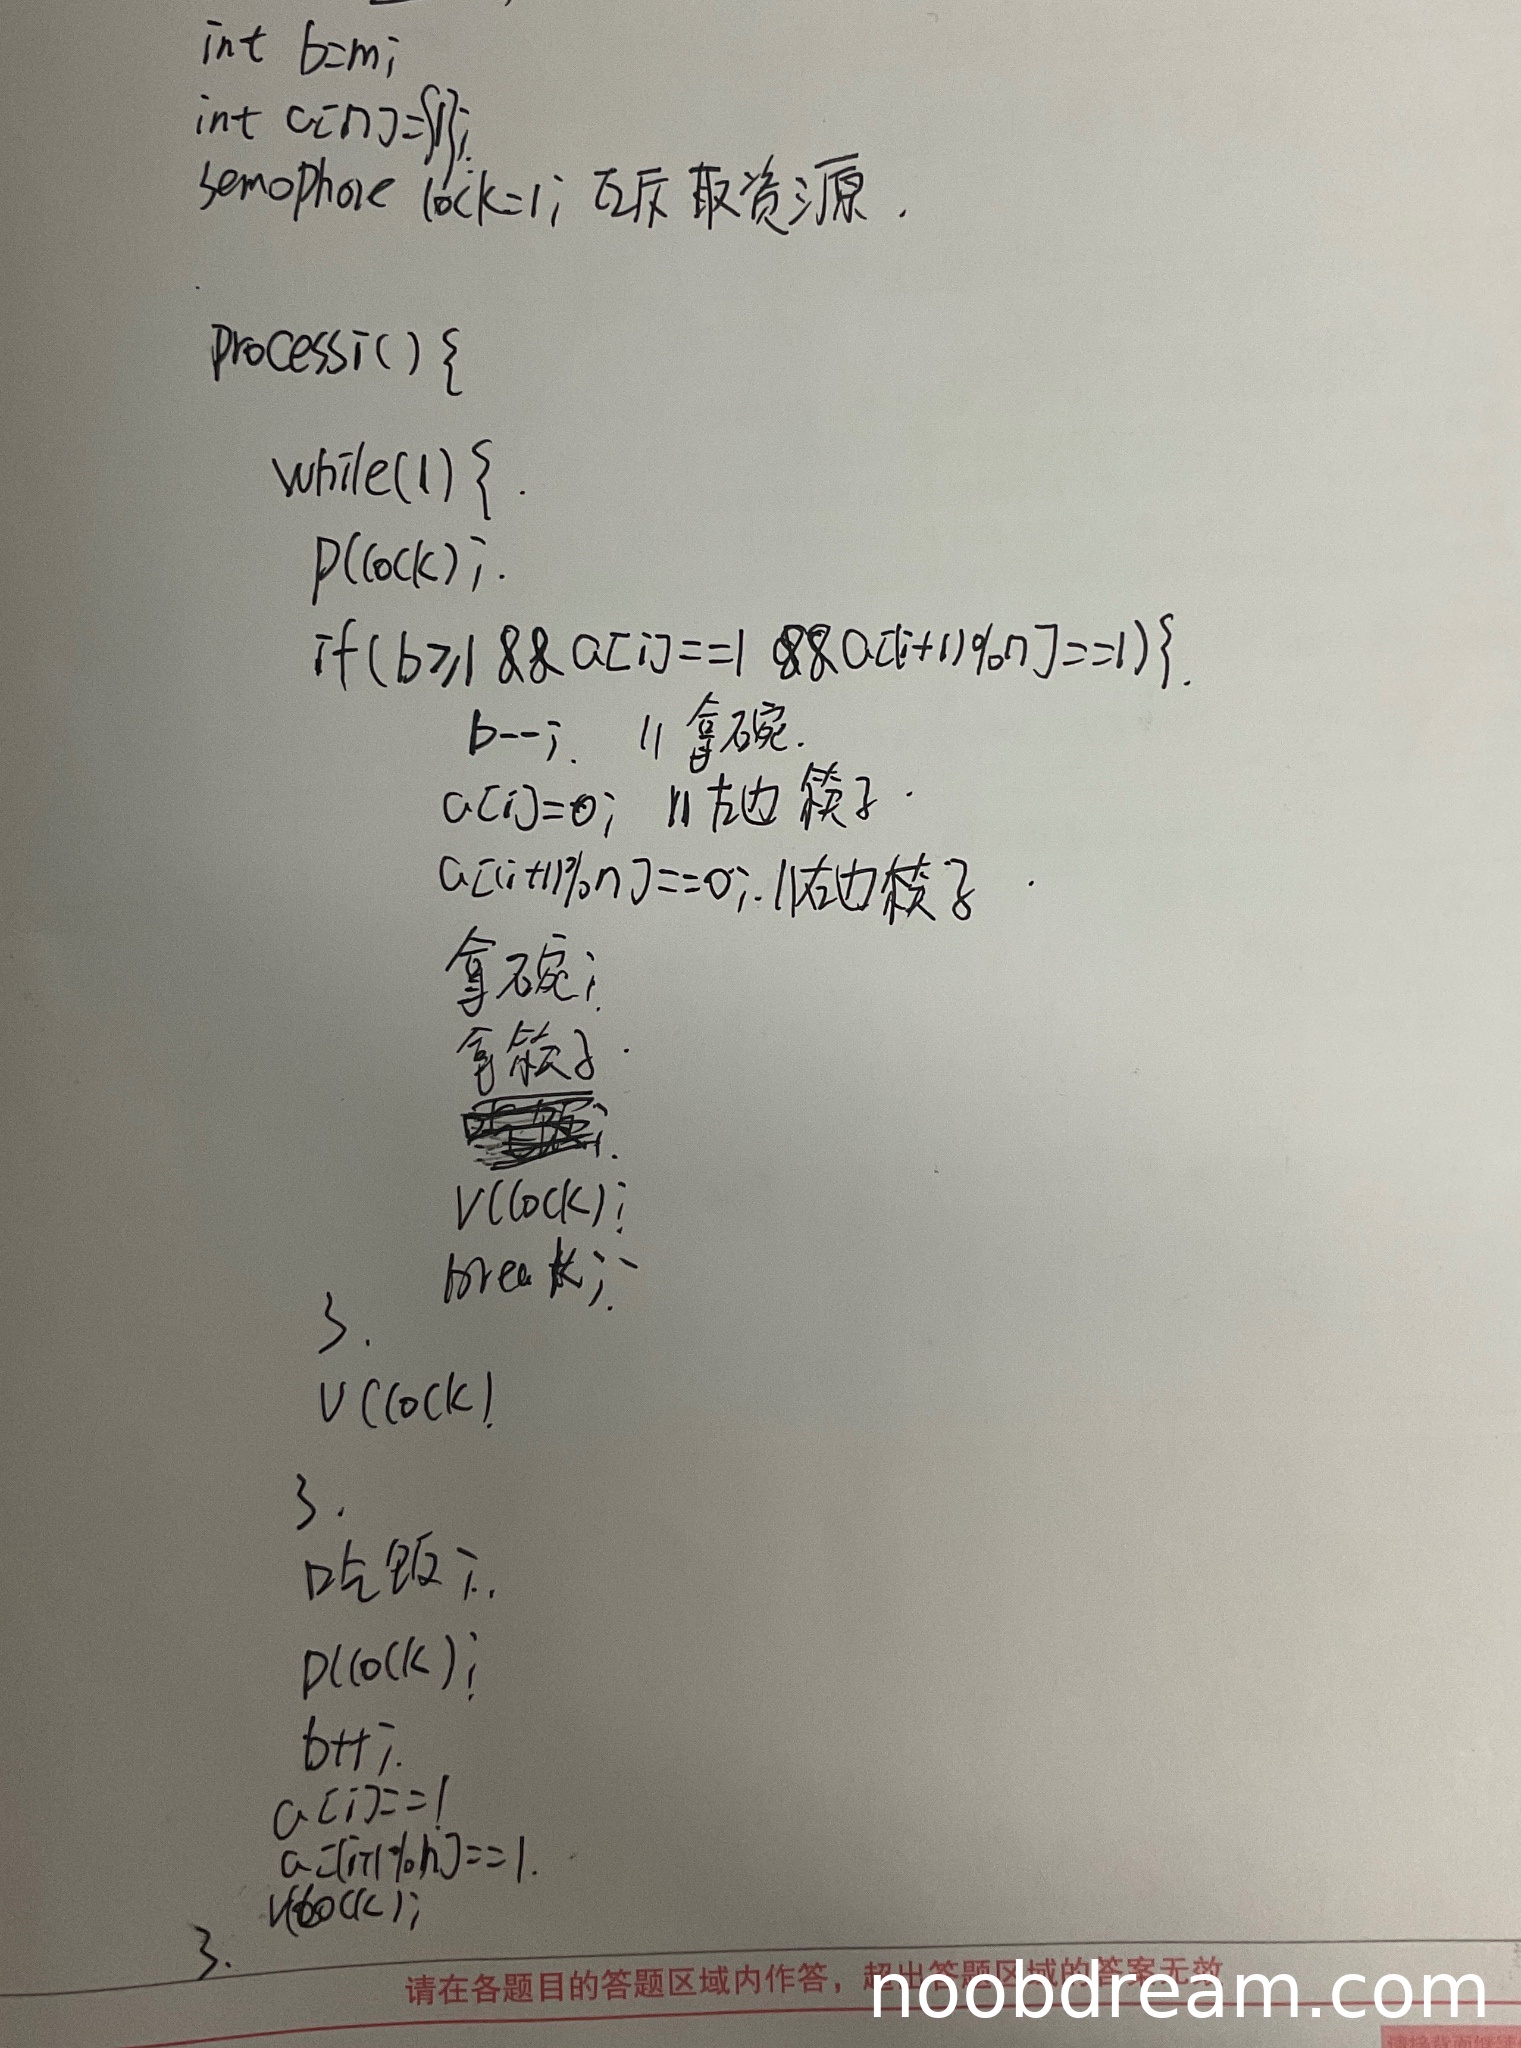 int b=m;
int a[n]={1};
semophore lock=1; 互斥取资源.
processi(){
while(1){
P(lock);
if(b≥1 && a[i]==1 && a[(i+1)%n]==1){
b--; //拿碗.
a[i]=0; //左边筷子
a[(i+1)%n]==0; //右边筷子
拿碗;
拿筷子
V(lock);
break;
}
V(lock)
}
吃饭;
P(lock);
b++;
a[i]==1
a[i+1%n]==1.
V(lock);
}
请在各题目的答题区域内作答，超出答题区域的答案无效
noobdream.com